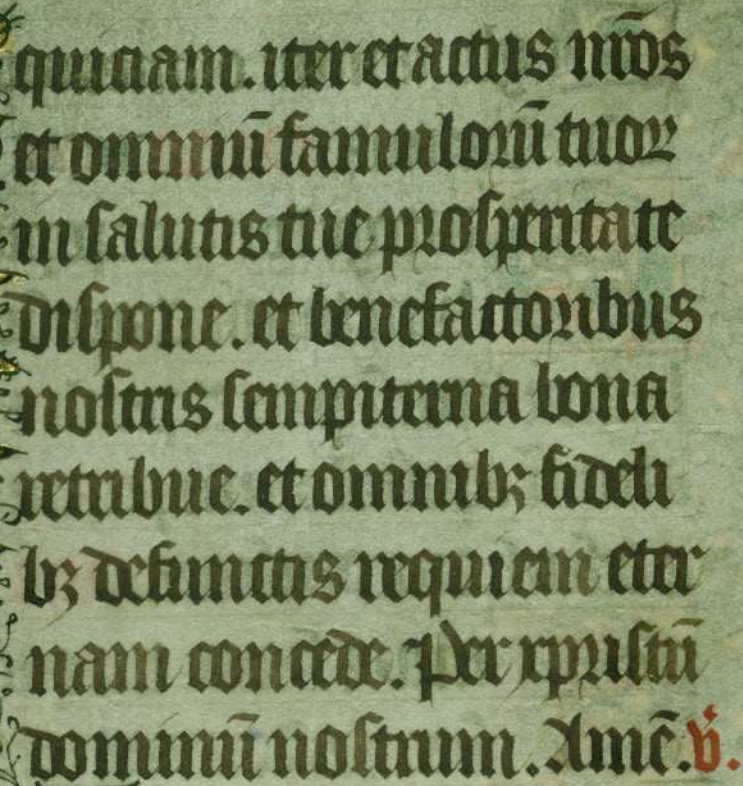 quiciam. iter et actus nr̄os
et omniū famulorū tuoꝝ
in salutis tue prosperitate
dispone. et benefactoribus
nostris sempiterna bona
retribue. et omnibꝫ fideli
bꝫ defunctis requiem eter
nam concede. Per xpristū
dominū nostrum. Amē. v̄.